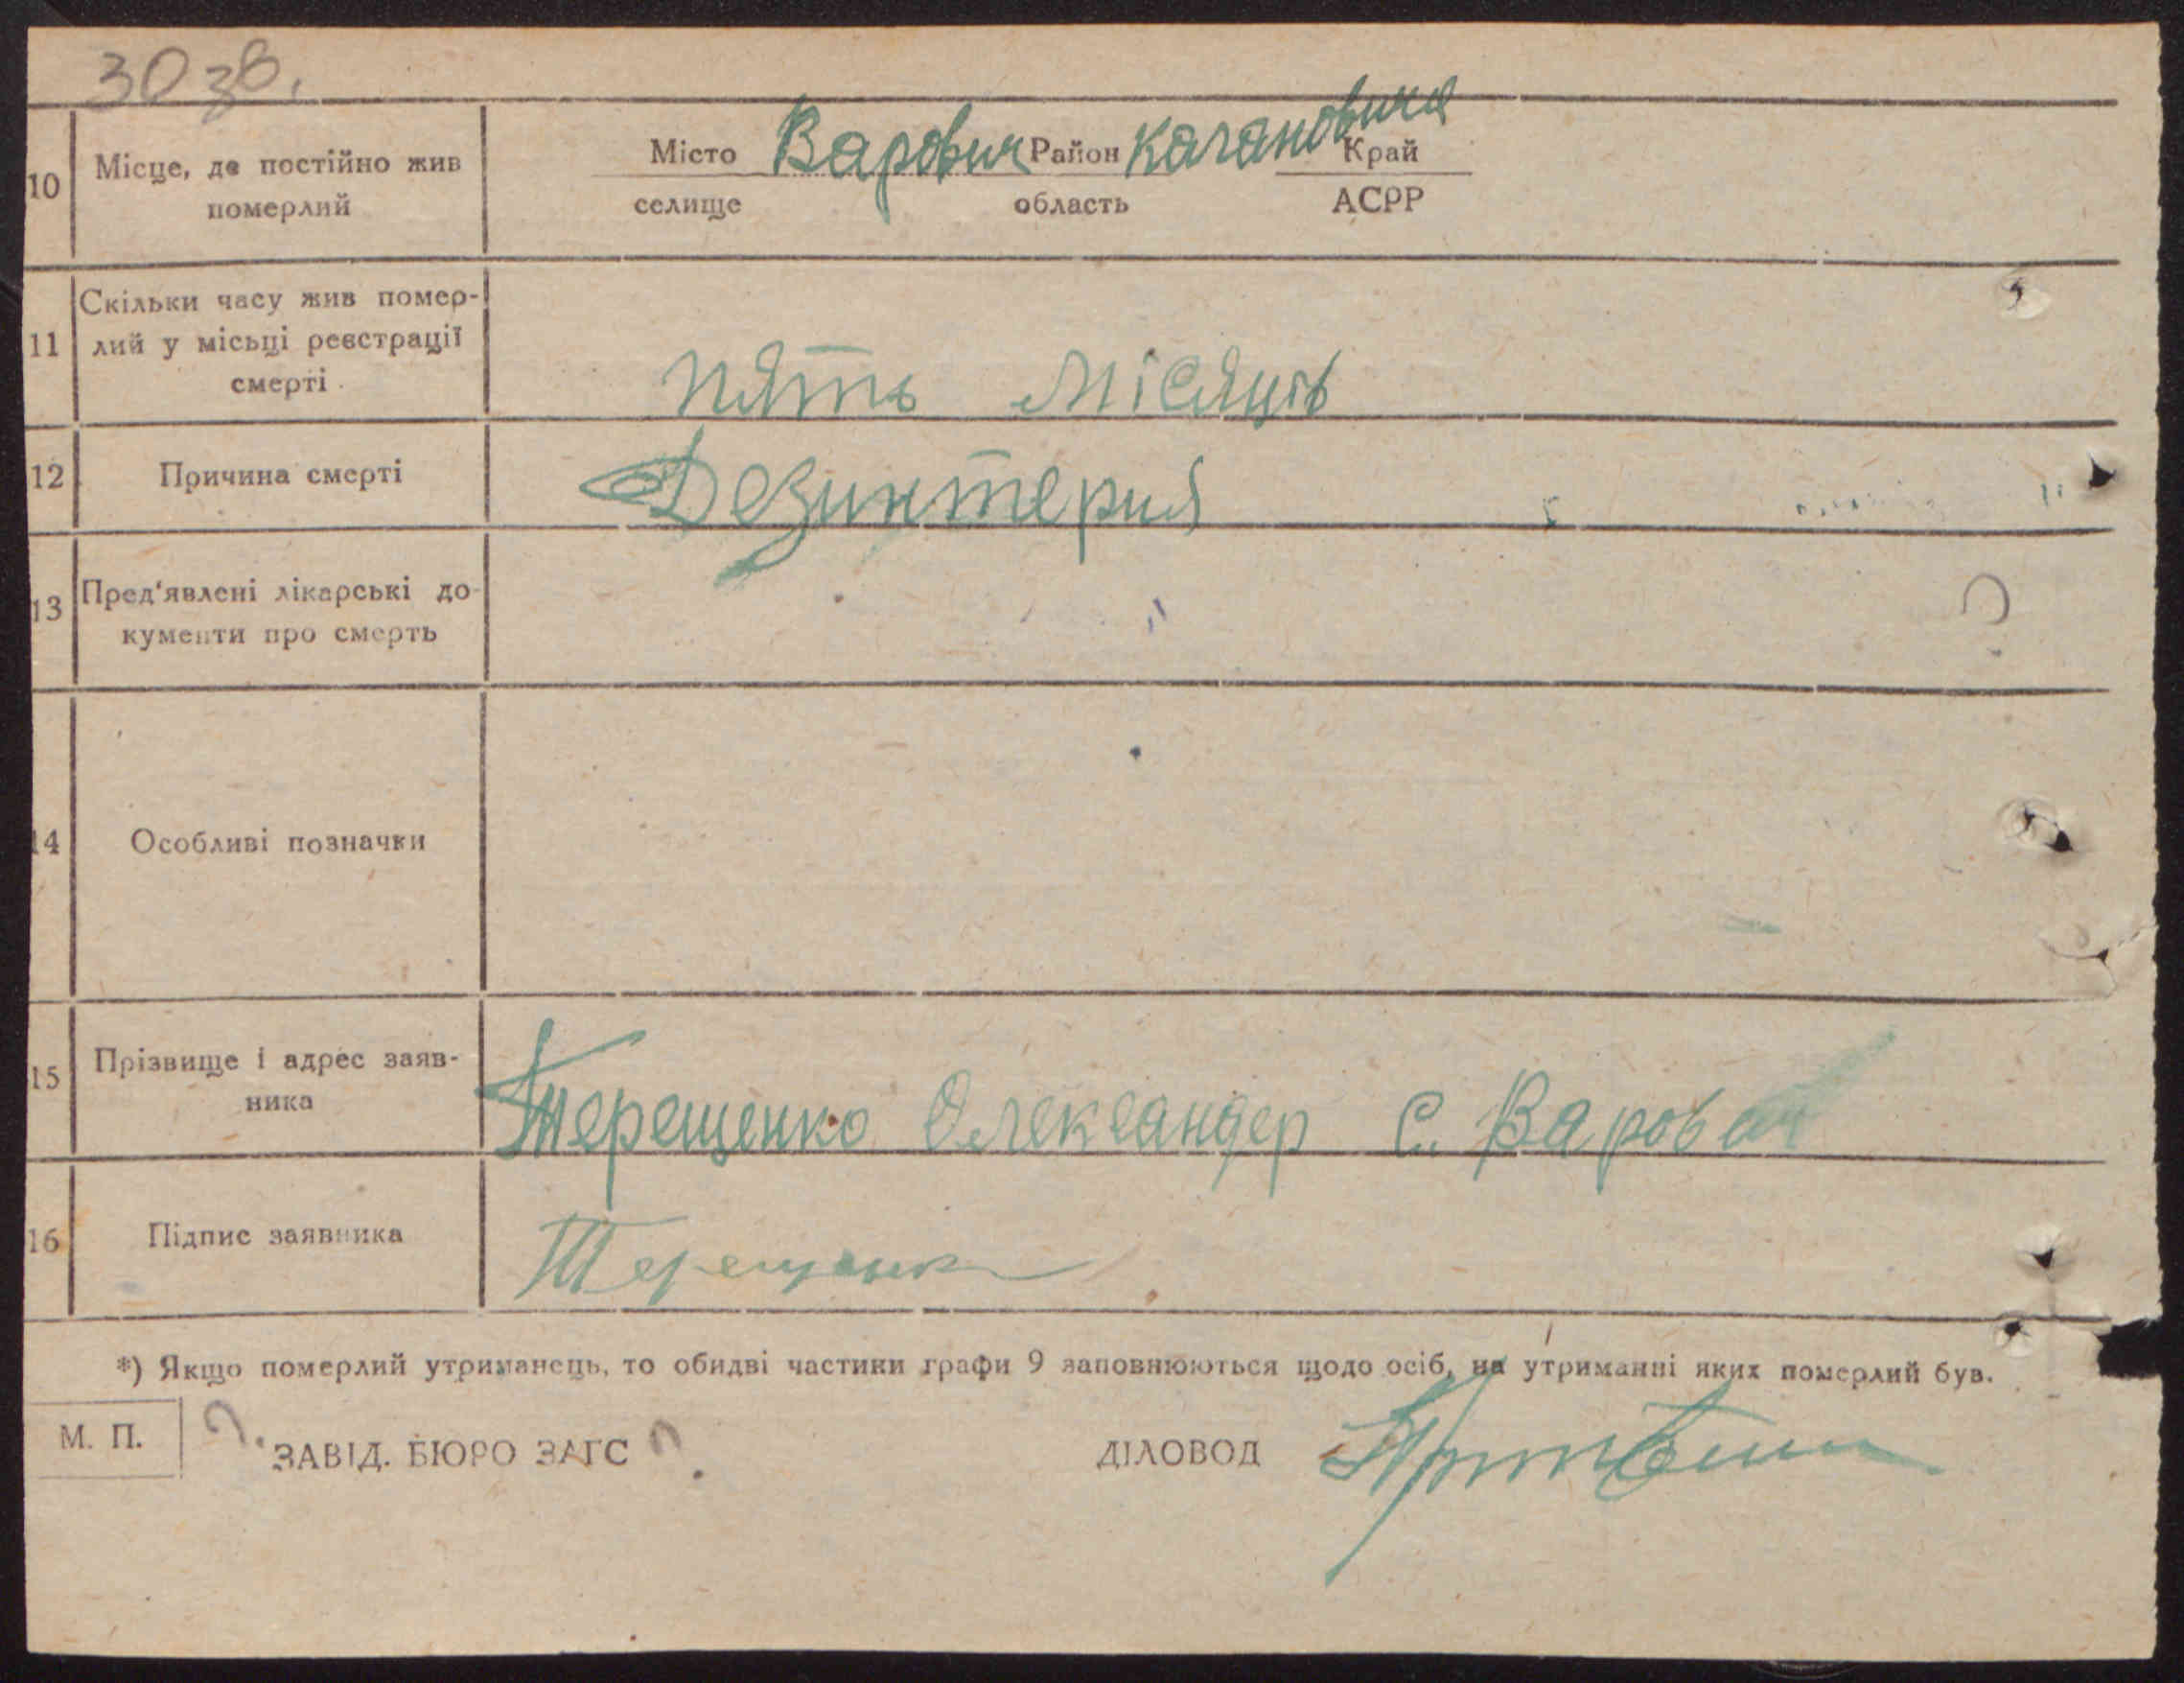 30 зв.
10 Місце, де постійно жив померлий
Місто Варович Район Кагановича Край
селище область АСРР
11 Скільки часу жив помер-
лий у місьці реєстрації
смерті
пять місяців
12 Причина смерті Дезинтерия
13 Пред'явлені лікарські до-
кументи про смерть
14 Особливі позначки
15 Прізвище і адрес заяв-
ника
Терещенко Олександер с. Варович
16 Підпис заявника Терещенко
*) Якщо померлий утриманець, то обидві частини графи 9 заповнюються щодо осіб, на утриманні яких померлий був.
М. П. ? ЗАВІД. БЮРО ЗАГС ? ДІЛОВОД